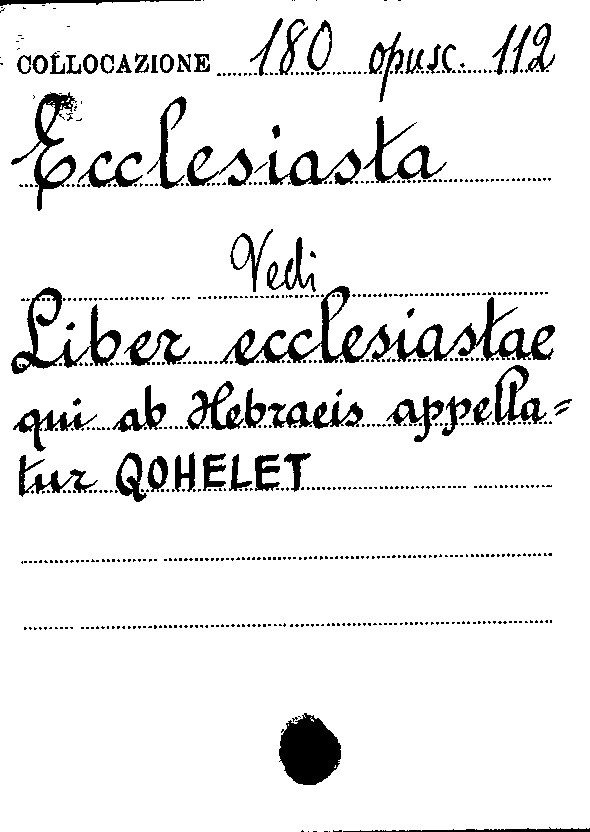 COLLOCAZIONE 180 opusc. 112
Ecclesiasta
Vedi
Liber ecclesiastae
qui ab Hebraeis appella=
tur QOHELET